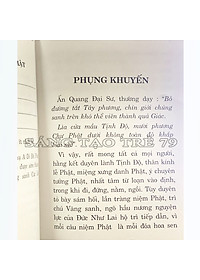 PHỤNG KHUYẾN
Ấn Quang Đại Sư, thường dạy : "Bỏ
đường tắt Tây phương, chín giới chúng
sanh trên khó thể viên thành quả Giác.
Lìa cửa mầu Tịnh Độ, mười phương
chư Phật dưới không toàn độ chúng
SÁNG TẠO TRẺ 79
Vì vậy, rất mong tất cả mọi người,
bằng kết duyên lành Tịnh Độ, thân kính
lễ Phật, miệng xưng danh Phật, ý chuyên
tưởng Phật, nhất tâm từ loạn vào định,
trong khi đi, đứng, nằm, ngồi. Tùy duyên
tỏ bày sám hối, lần tràng niệm Phật, trì
chú Vãng sanh, ngõ hầu nương nguyện
lực của Đức Như Lai hộ trì tiếp dẫn, vì
mỗi câu niệm Phật là mỗi đóa hoa sen